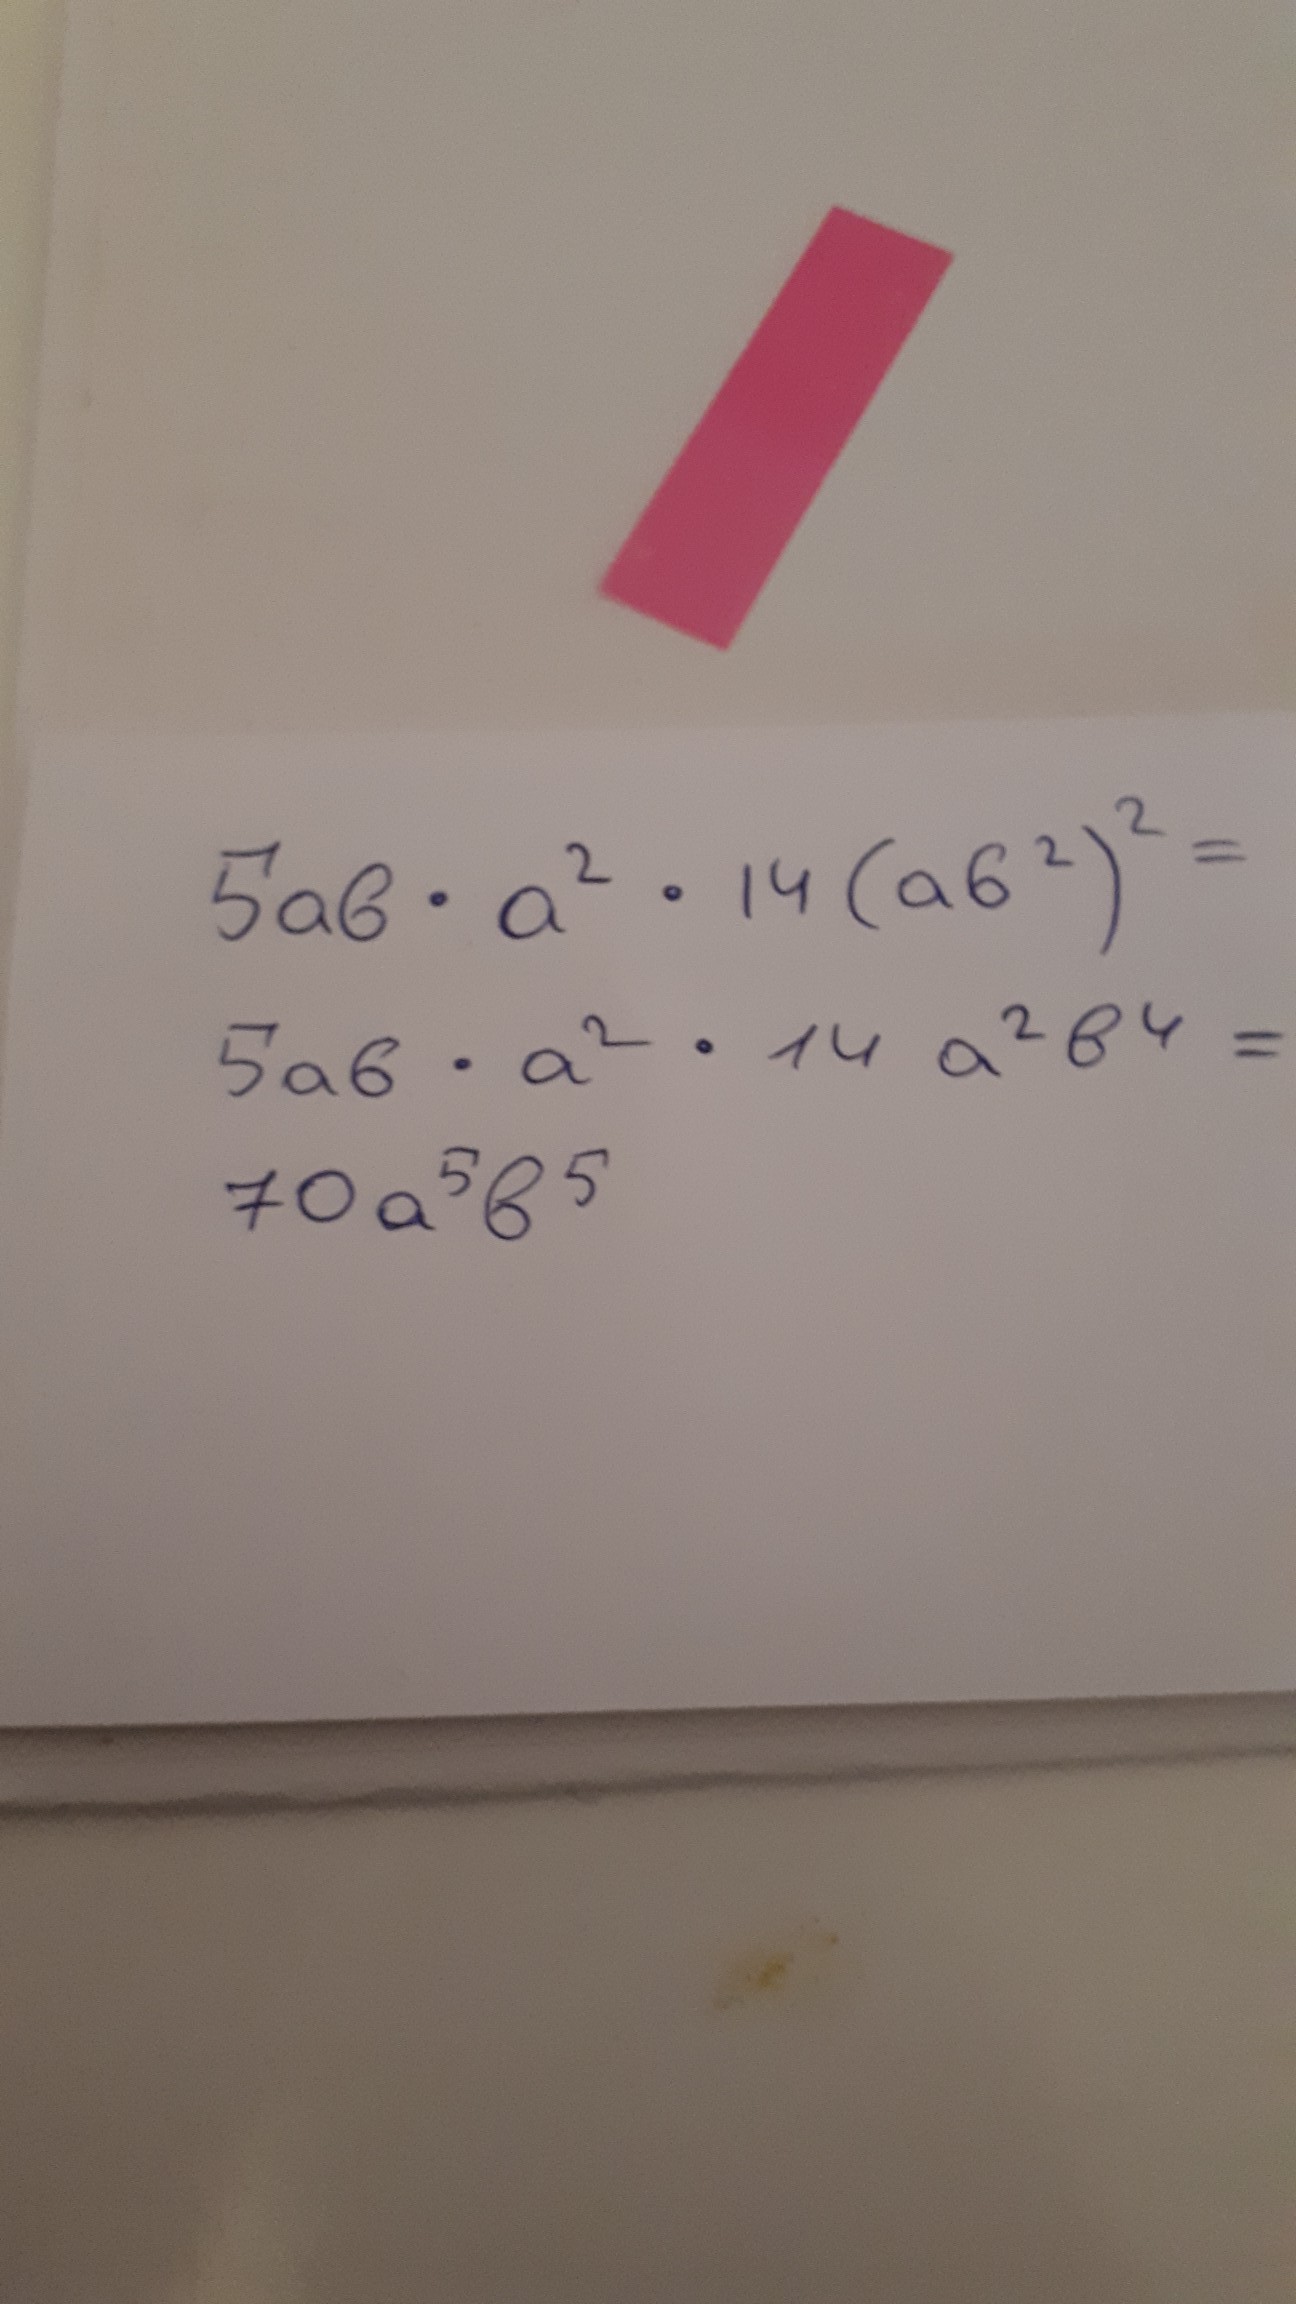 5ab · a² · 14(ab²)² =
5ab · a² · 14 a²b⁴ =
70a⁵b⁵